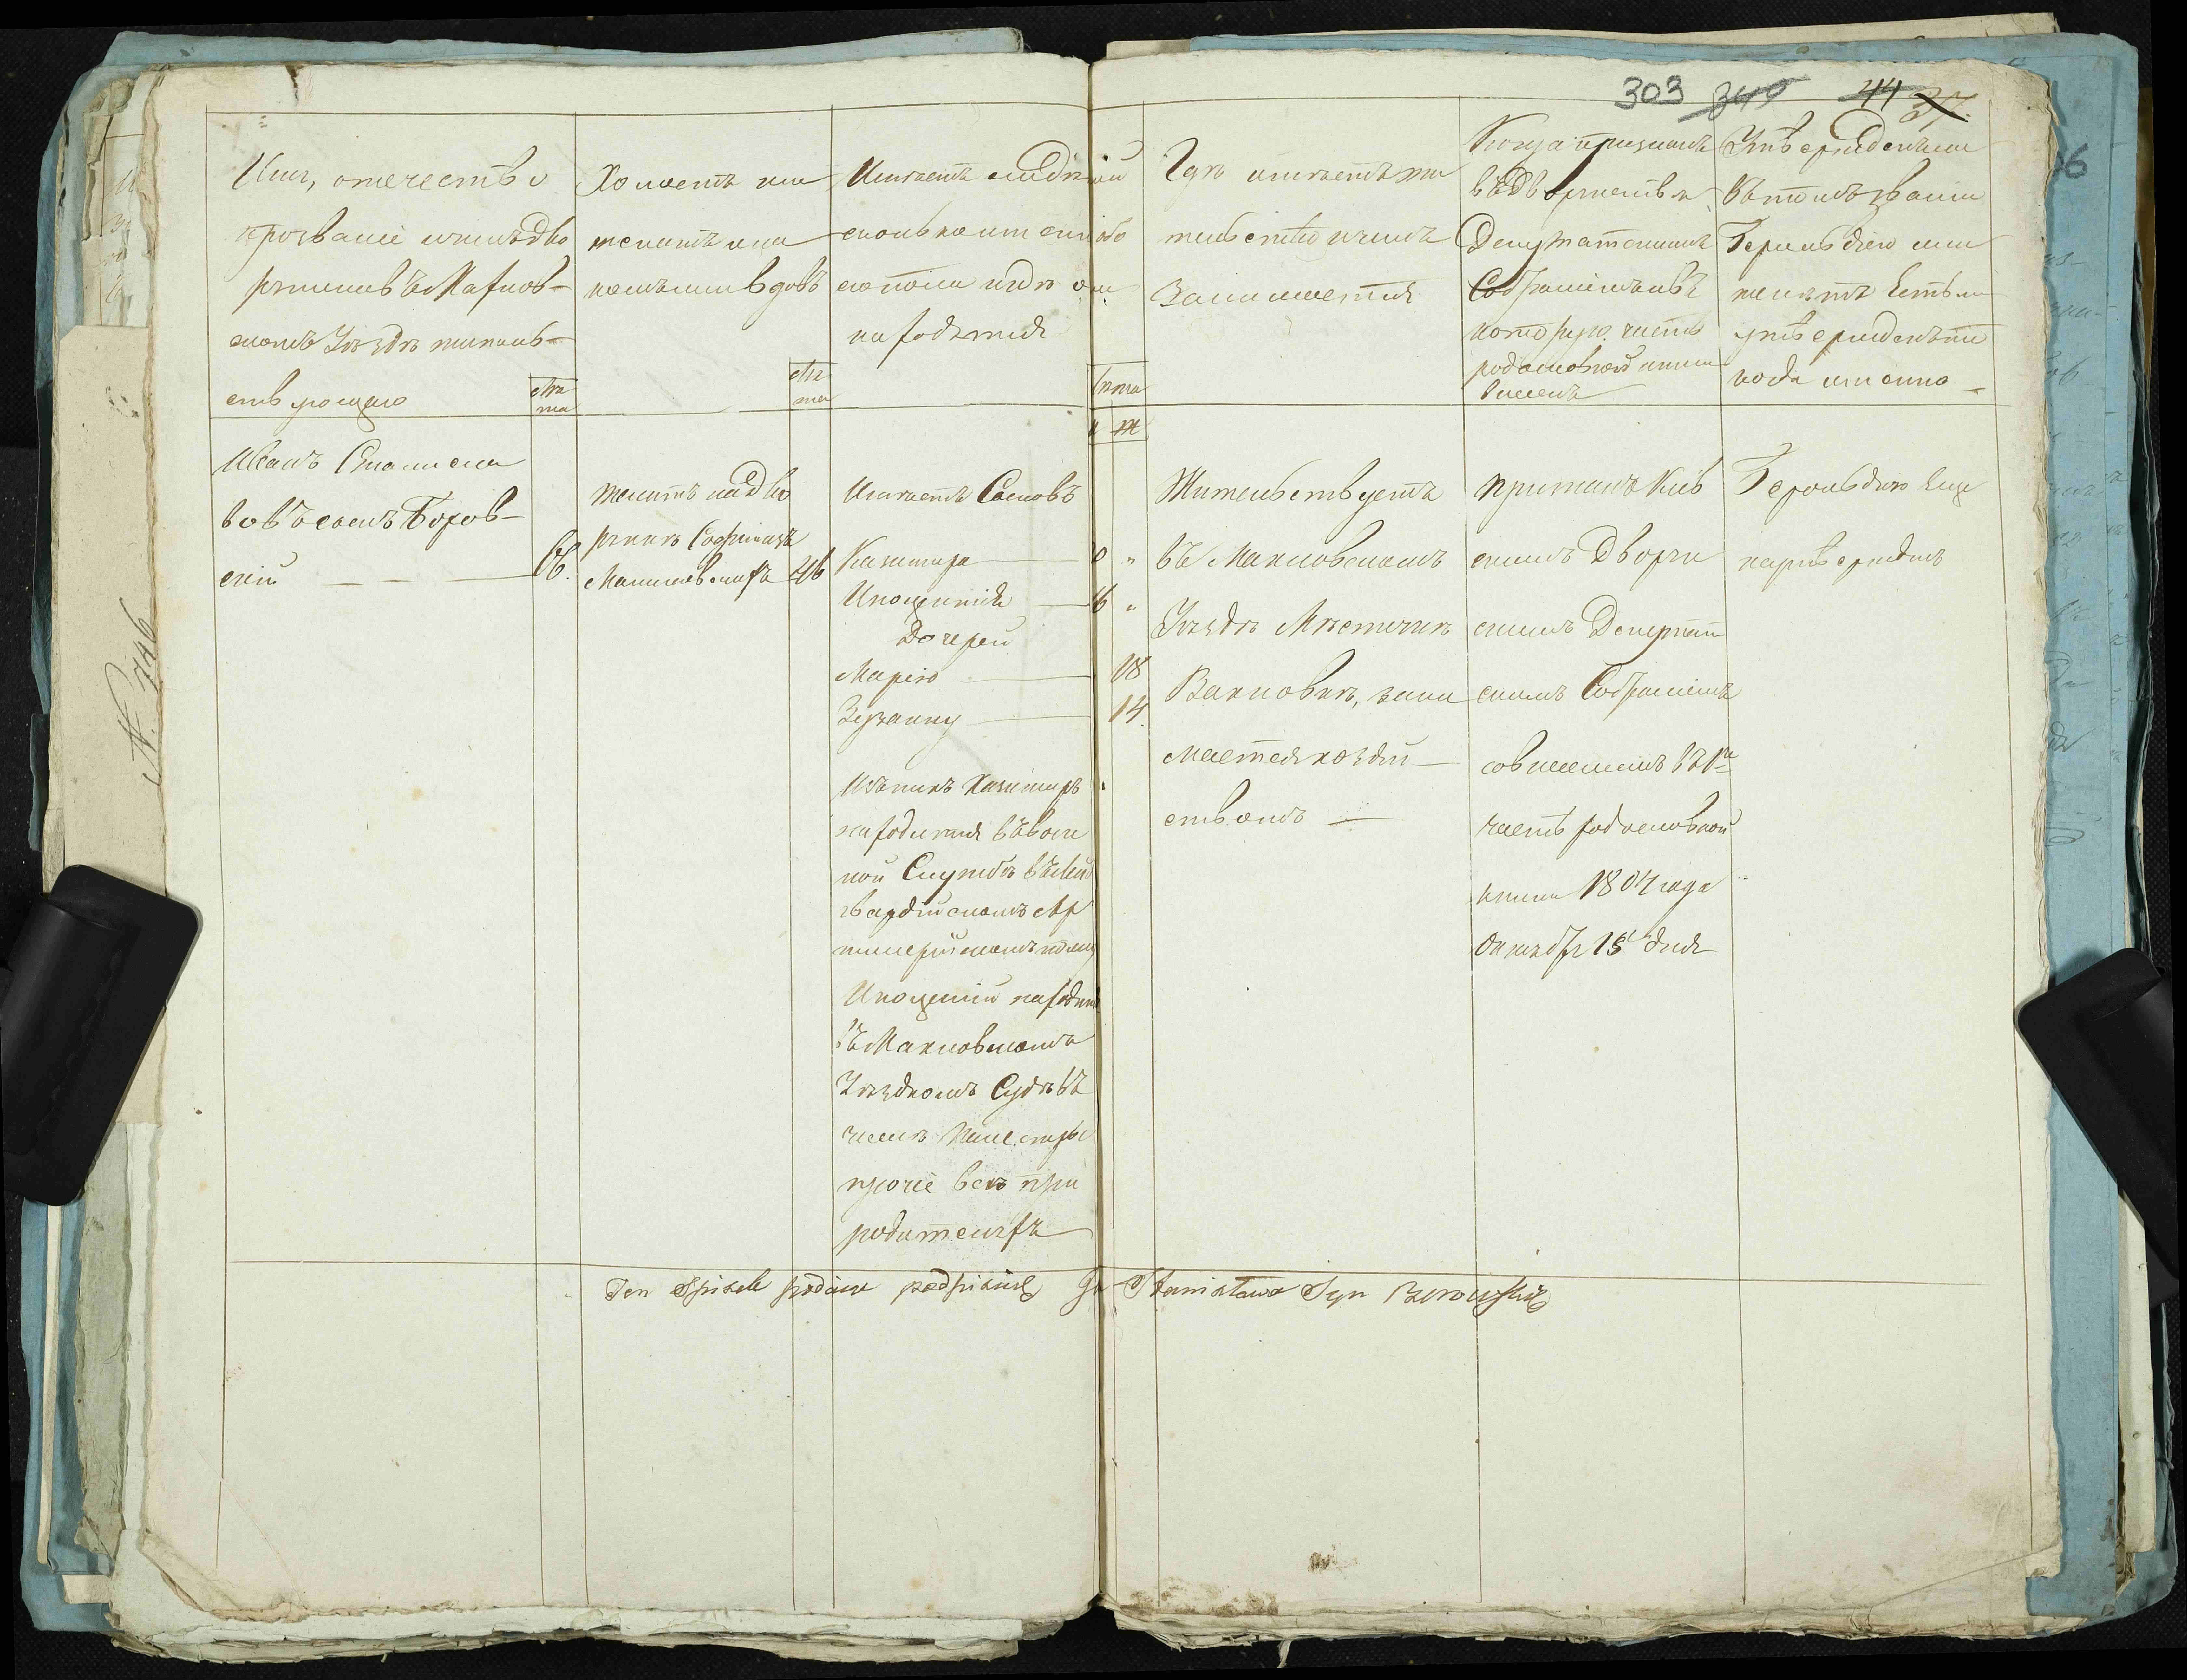 303 349 44 37
Имя, отечество
прозваніе и чинъ дво
рянинъ въ Махнов-
скомъ Уездѣ житель-
ствующаго
лѣ
та
Холостъ или
женатъ и на
комъ или вдовъ
лѣ
та
Имѣетъ ли дѣтей
сколько именно обо
его пола и гдѣ они
находятся
лѣта
м ж
Гдѣ имѣетъ жи
тельство и чемъ
занимается
Когда признанъ
въ Дворянствѣ
Депутатскимъ
Собраніемъ и въ
которую часть
родословной книги
внесенъ
Утвержденъ ли
въ томъ званіи
Герольдіею или
нѣтъ Есть ли
утвержденъ то
когда именно
Иванъ Станисла
вовъ сынъ Боров-
скій 66.
женатъ на дво
рянкѣ Софіи изъ
46
Имѣетъ Сыновъ
Казимира
Инокентія 16 "
Дочерей
Марію 18
Зузанну 14.
Изъ нихъ Казимиръ
находится въ воен
ной Службѣ въ Лейб
гвардійскомъ Ар
тилерійскомъ полку
Инокентій находит
въ Махновскомъ
Уѣздномъ Судѣ въ
числѣ Канцеляріи
прочіе всѣ при
родителяхъ
Жительствуетъ
въ Махновскомъ
Уѣздѣ Мѣстичкѣ
Вахновкѣ, зани
мается хозяй
ствомъ
признанъ Кіев
скимъ Дворян
скимъ Депутат
скимъ Собраніемъ
со внесеніемъ въ 1ю
часть родословной
книги 1804 года
Октября 15 дня
Герольдіею Еще
неутвержденъ
Ten Spisek podaje podpisuje Jan Stanisława Syn Borowski
N. 746